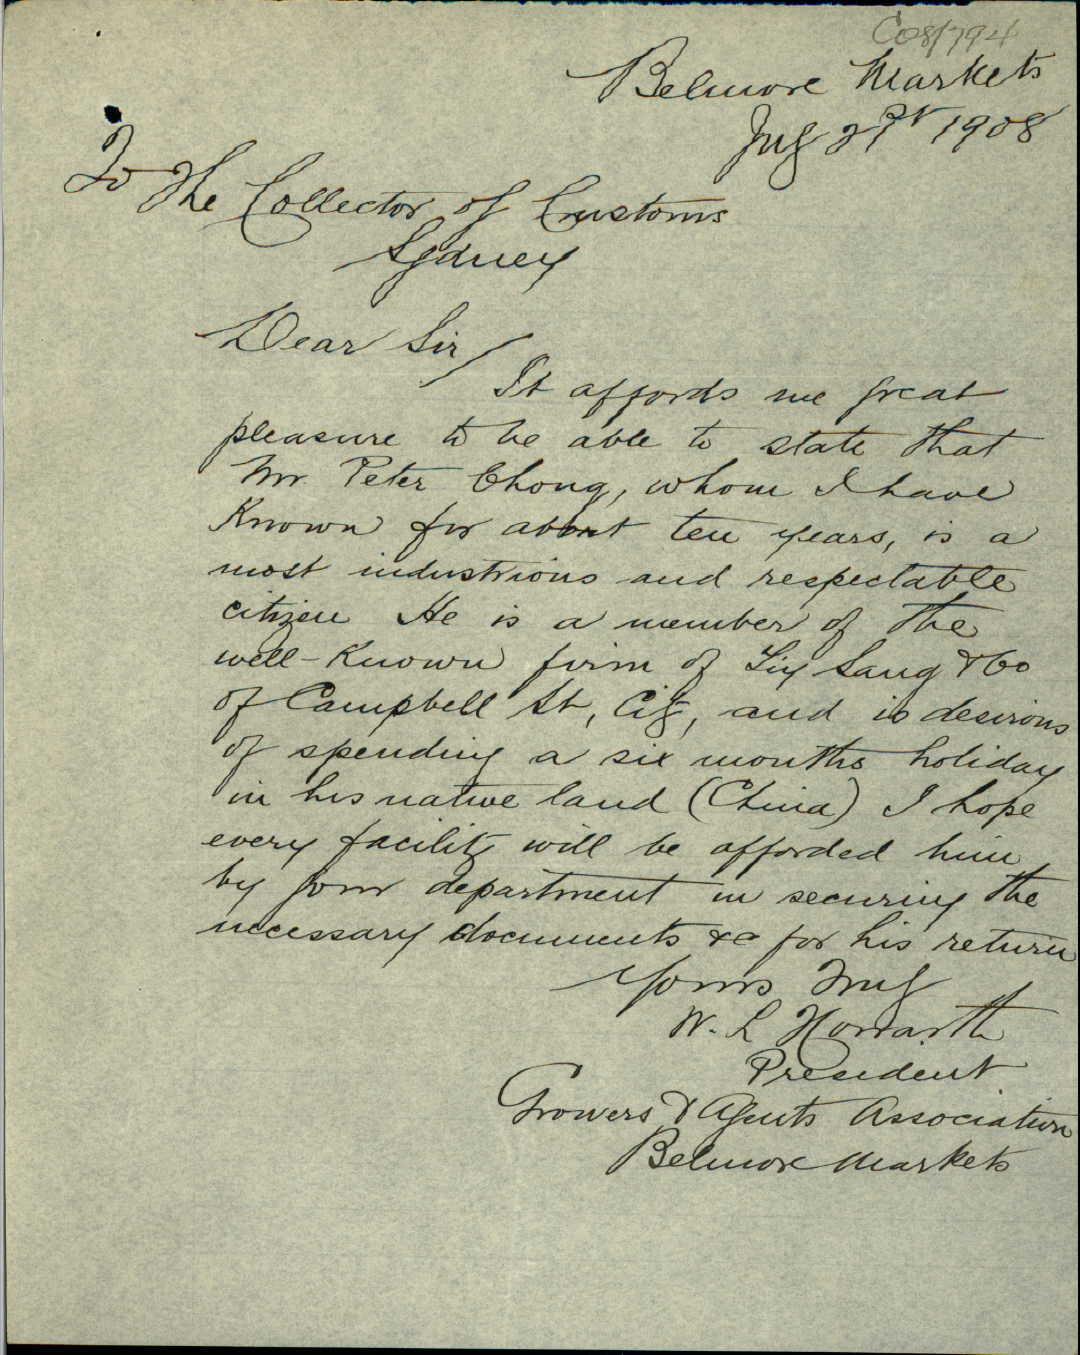 C08/794
Belmore Markets
July 21st 1908
To The Collector of Customs
Sydney
Dear Sir/
It affords me great
pleasure to be able to state that
Mr. Peter Chong, whom I have
Known for about ten years, is a
most industrious and respectable
citizen He is a member of the
well-Known firm of Sang & Co
of Campbell St, City, and is desirous
of spending a six months holiday
in his native land (China) I hope
every facility will be afforded him
by your department in securing the
necessary documents &c for his return
Yours Truly
W. L Howarth
President
Growers & Agents Association
Belmore Markets